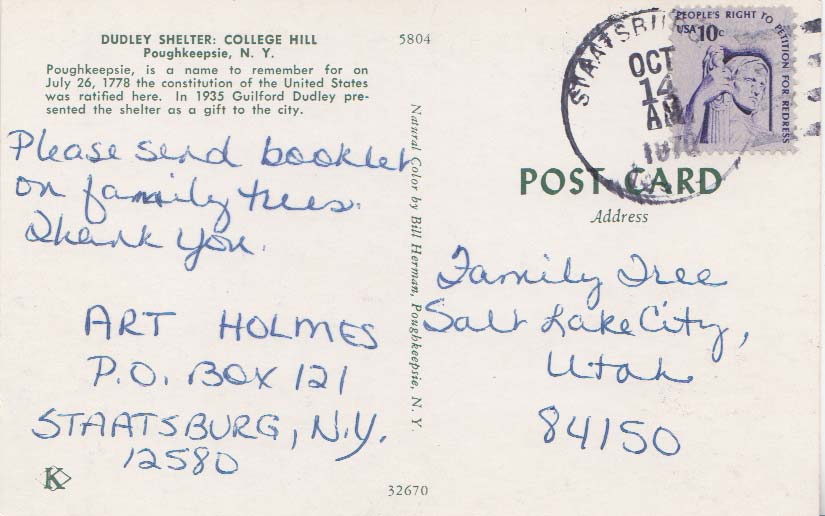 DUDLEY SHELTER: COLLEGE HILL
Poughkeepsie, N. Y.
Poughkeepsie, is a name to remember for on
July 26, 1778 the constitution of the United States
was ratified here. In 1935 Guilford Dudley pre-
sented the shelter as a gift to the city.
5804
Please send booklet
on family trees.
Thank you.
ART HOLMES
P.O. BOX 121
STAATSBURG, N.Y.
12580
K
Natural Color by Bill Herman, Poughkeepsie, N. Y.
32670
STAATSBURG
OCT
14
AM
PEOPLE'S RIGHT TO PETITION FOR REDRESS
USA 10c
POST CARD
Address
Family Tree
Salt Lake City,
Utah
84150